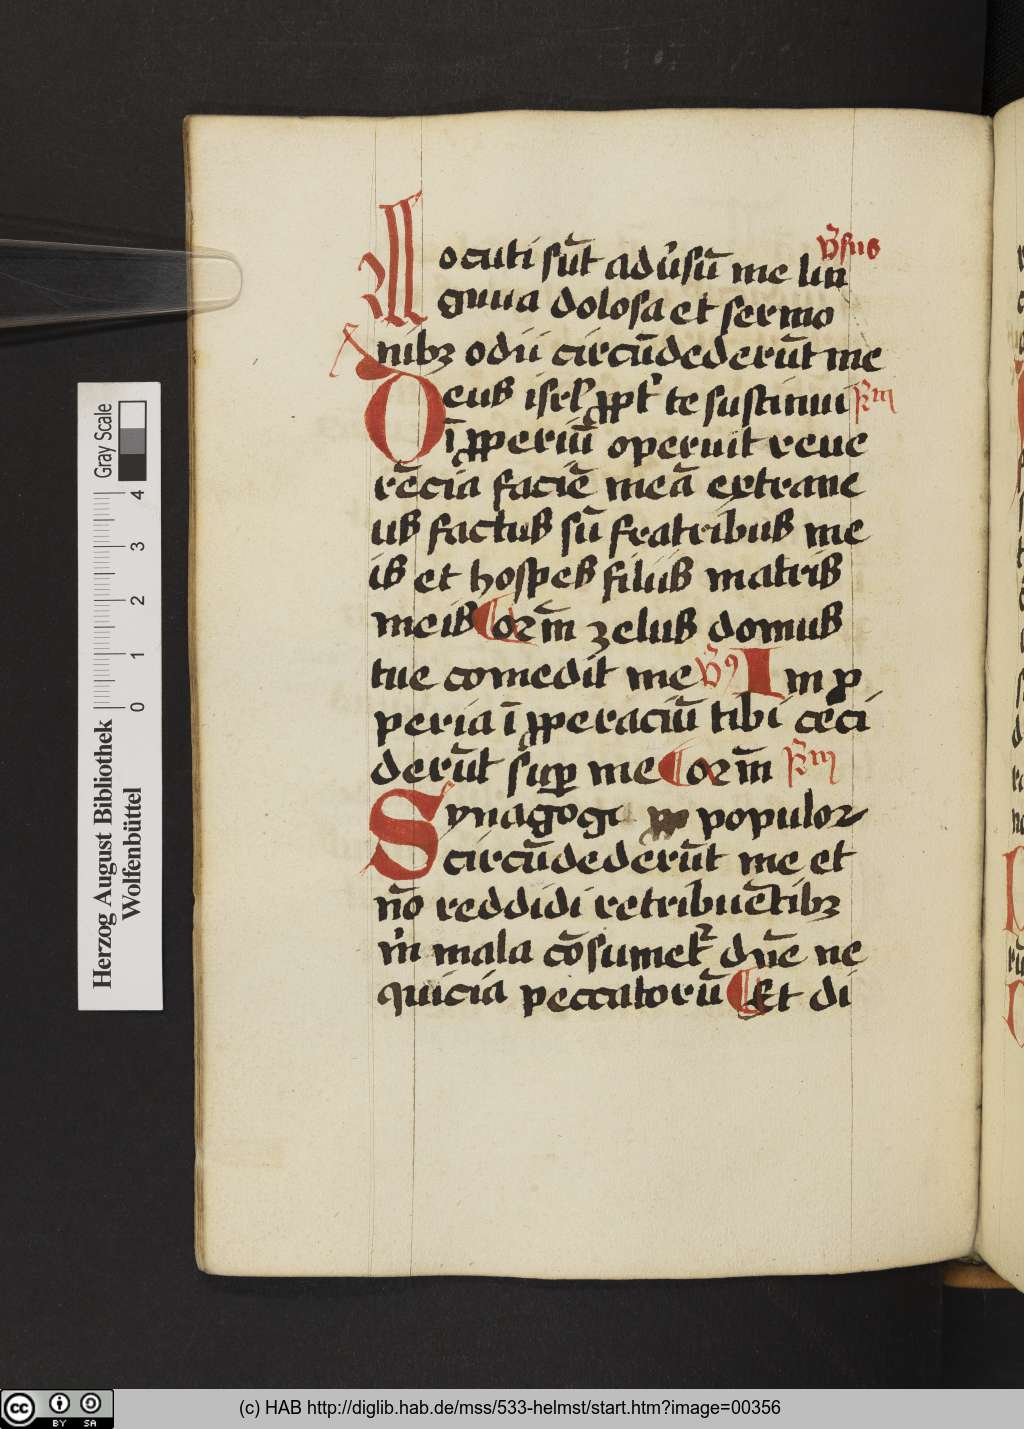 v̄sus
Locuti sūt adūsū me lin
gwa dolosa et sermo
nibꝫ odii circūdederūt me
Deus isrl̕ ꝓpt̕ te sustinui
ī ꝓperiū operuit reue
rēcia faciē meā extrane
us factus sū fratribus me
is et hospes filiis matris
meis Qꝛm̄ zelus domus
tue comedit me v̄ꝰ Im ꝓ
peria ī ꝓperaciū tibi ceci
derūt suꝑ me Qꝛm̄
Synagoge populoꝝ
circūdederūt me et
nō reddidi retribuētibꝫ
m̄ mala cōsumet᷑ dn̄e ne
quicia peccatorū Et di
Herzog August Bibliothek
Wolfenbüttel
0 1 2 3 4
Gray Scale
cc BY SA
(c) HAB http://diglib.hab.de/mss/533-helmst/start.htm?image=00356